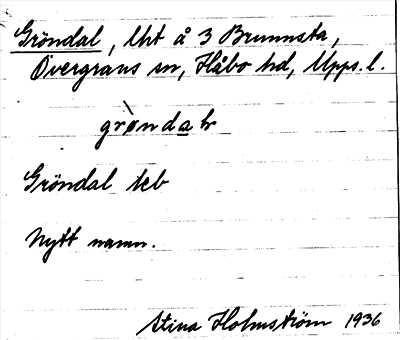 Gröndal, lht å 3 Brunnsta,
Övergrans sn, Håbo hd, Upps. l.
grønda
Gröndal
Nytt namn.
Stina Holmström 1936